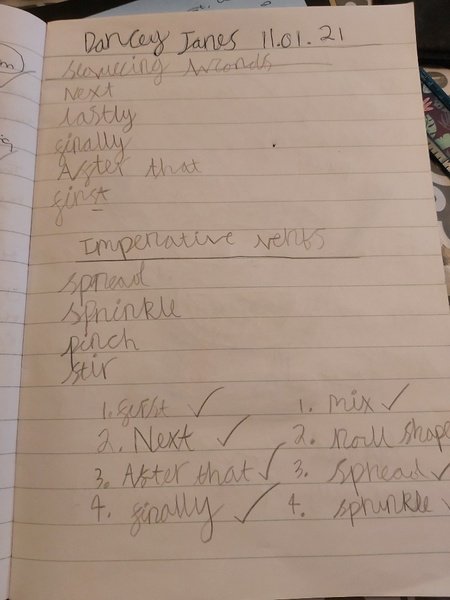 Dancey Janes 11.01.21
Sequecing words
Next
lastly
finally
After that
first
Imperative verbs
spread
sprinkle
pinch
stir
1. first ✓ 1. mix ✓
2. Next ✓ 2. roll shape
3. After that ✓ 3. spread ✓
4. finally ✓ 4. sprinkle ✓